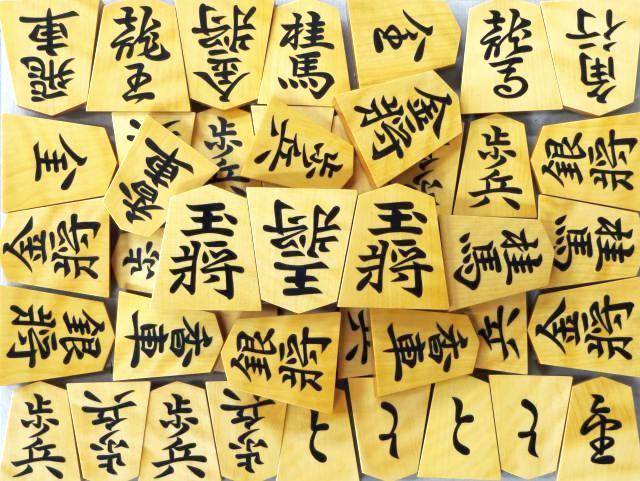 飛車
龍王
金将
桂馬
龍馬
角行
飛車
歩兵
歩兵
金将
歩兵
銀将
金将
歩
王将
王将
王将
桂馬
桂馬
銀将
香車
銀将
香車
兵
金将
歩兵
歩兵
歩兵
歩兵
と
と
と
と